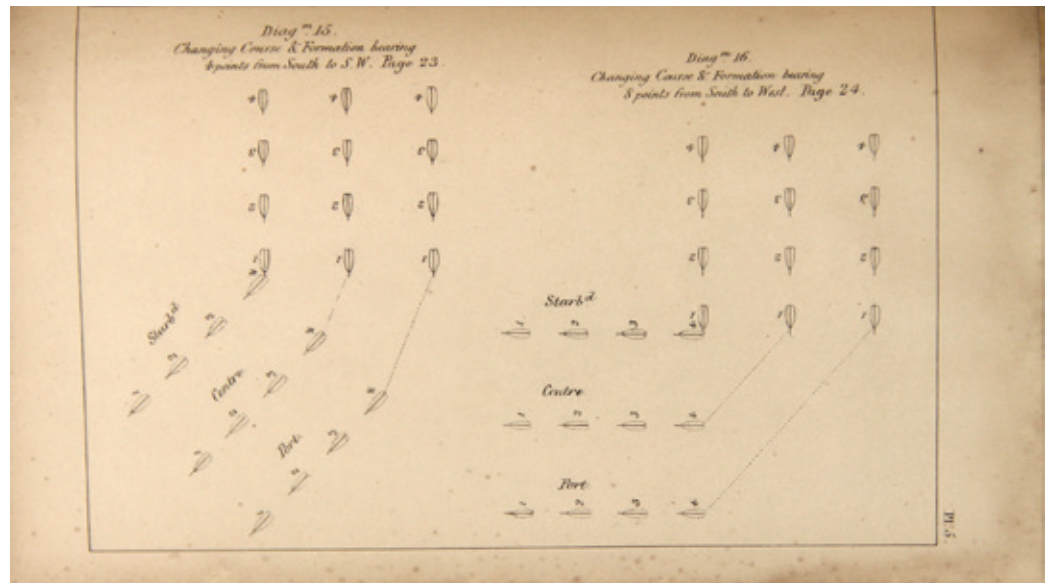 Diagm. 15.
Changing Course & Formation bearing
4 points from South to S.W. Page 23.
4 4 4
3 3 3
2 2 2
1 1 1
4
Starbd
3
2
1
4
Centre
3
2
1
4
Port.
3
2
1
Diagm. 16.
Changing Course & Formation bearing
8 points from South to West. Page 24.
4 4 4
3 3 3
2 2 2
1 1 1
Starbd
1 2 3 4
Centre
1 2 3 4
Port
1 2 3 4
Pl. 5.